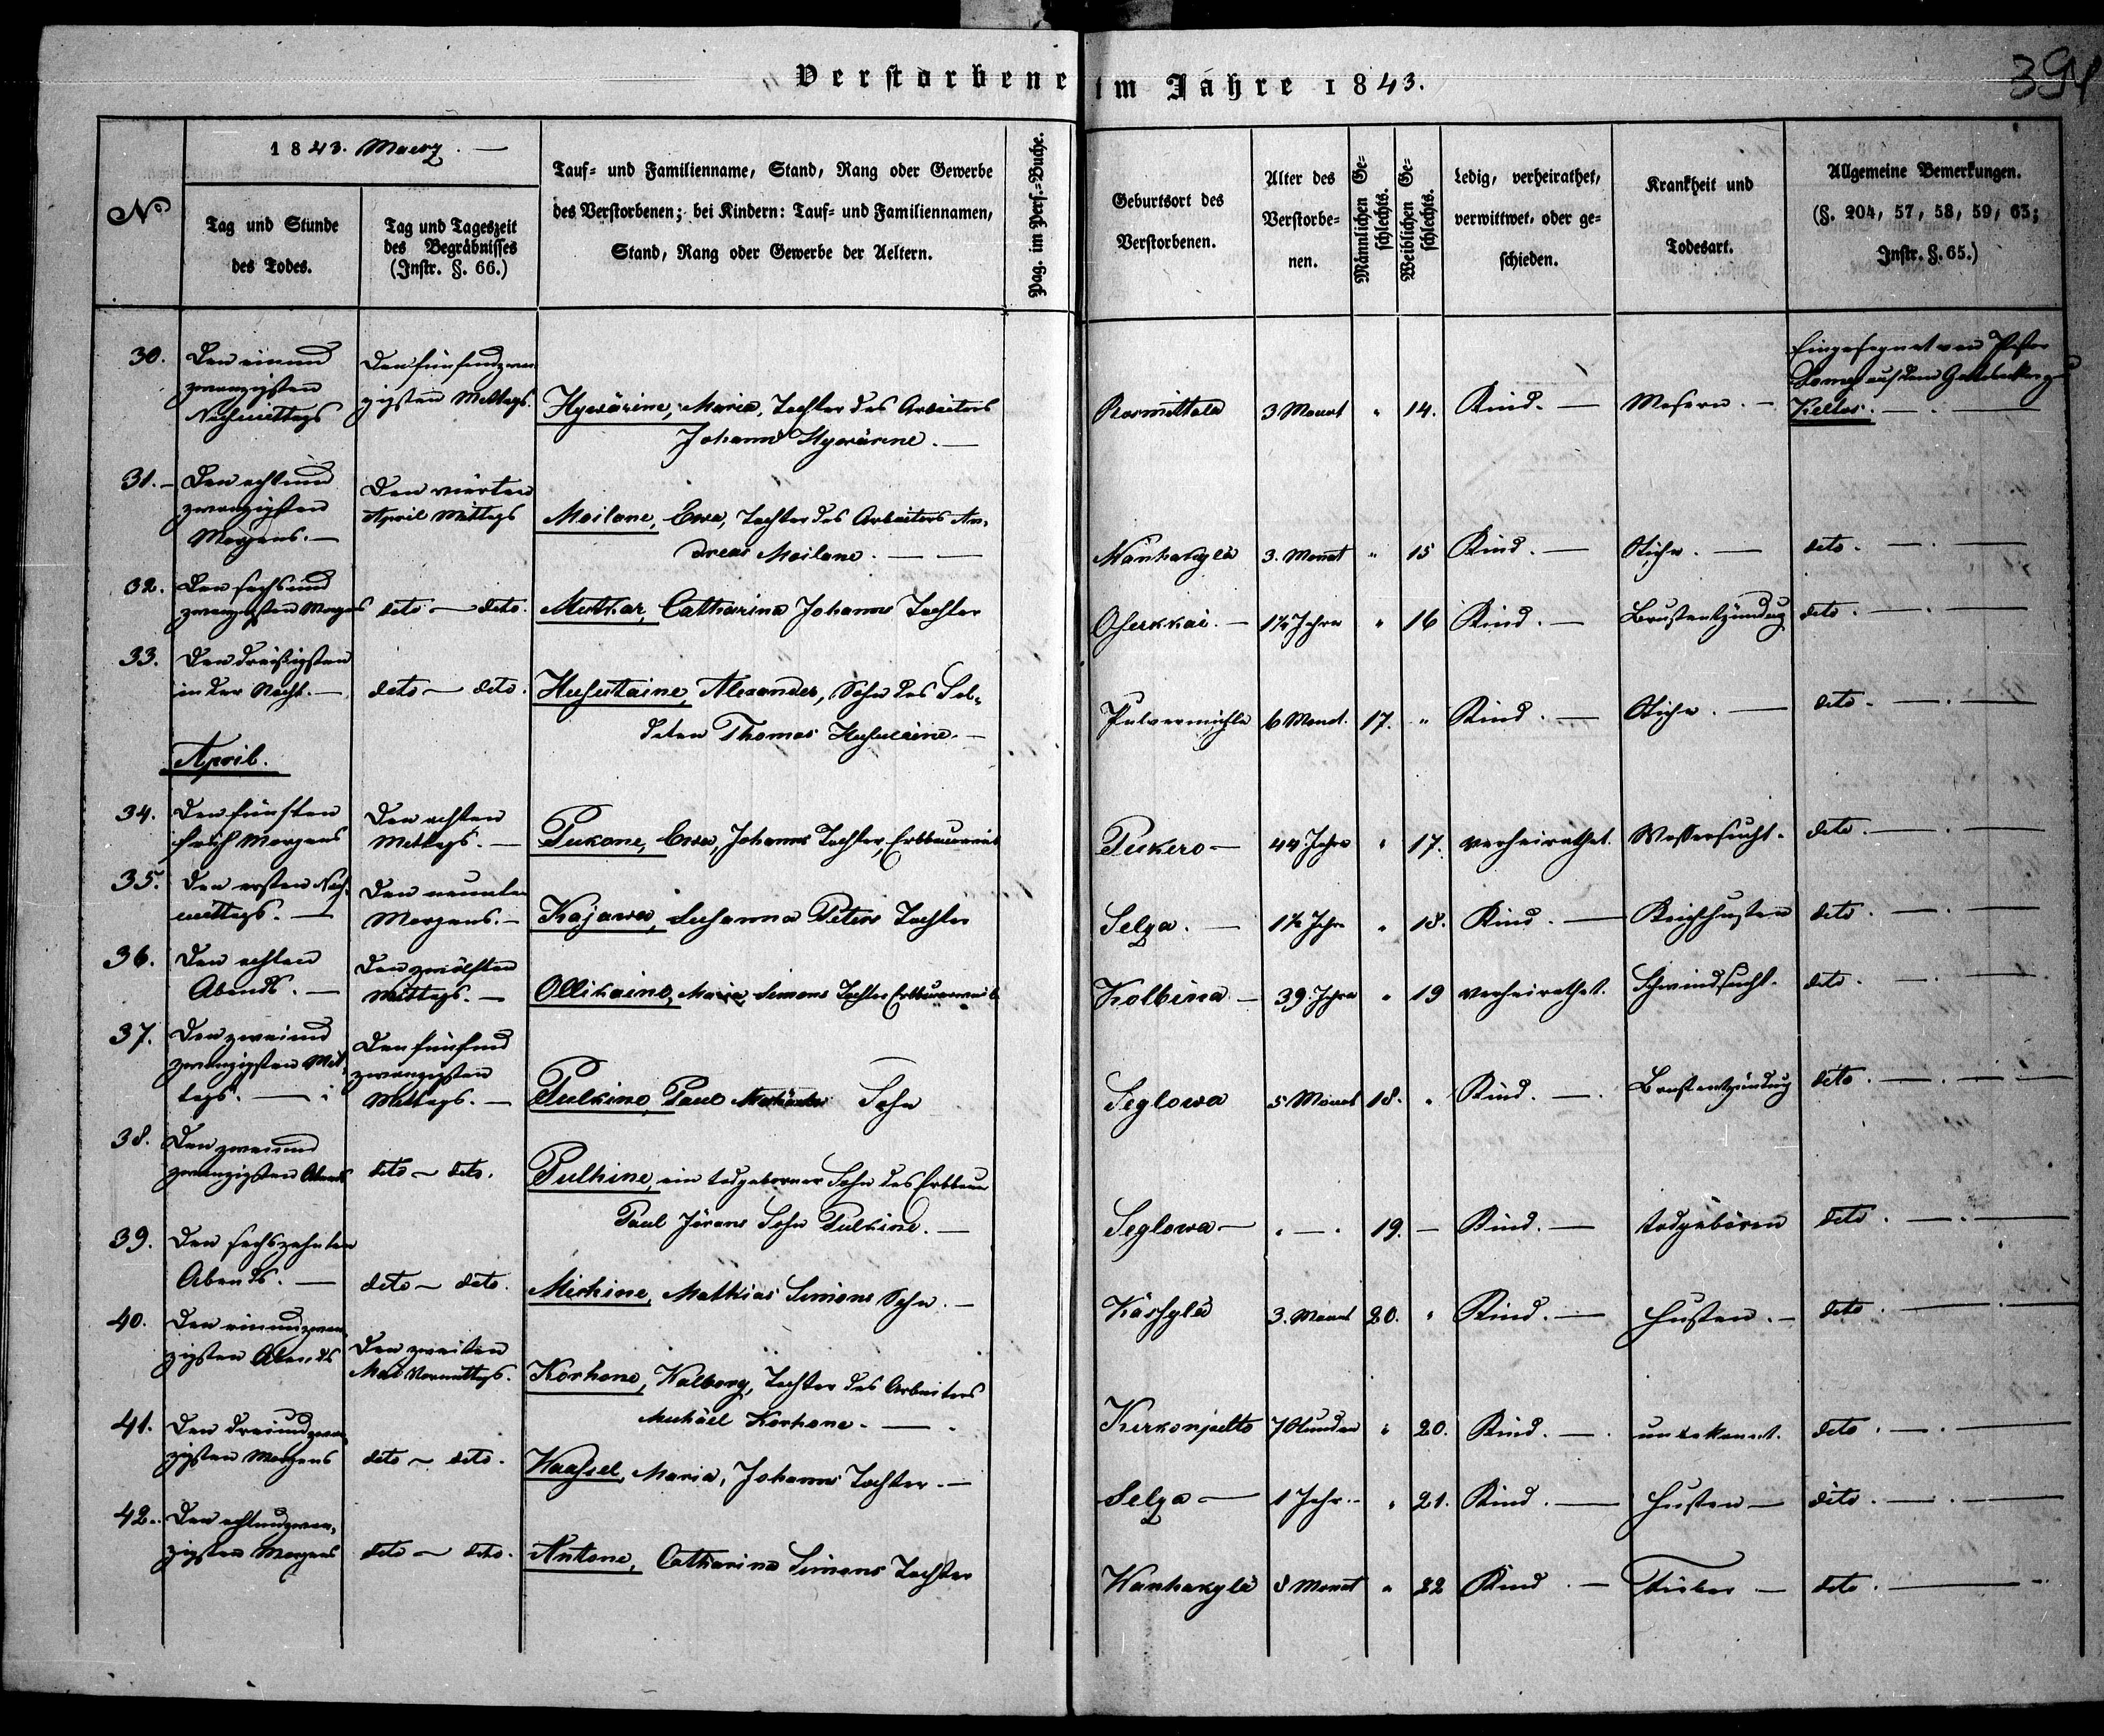 Verstorbene im Jahre 1843.
394
No
1843. Maerz.
Tag und Stunde
des Todes.
Tag und Tageszeit
des Begräbnisses
(Instr. §. 66.)
Tauf- und Familienname, Stand, Rang oder Gewerbe
des Verstorbenen; bei Kindern: Tauf- und Familiennamen,
Stand, Rang oder Gewerbe der Aeltern.
Pag. im Pers.-Buche.
Geburtsort des
Verstorbenen.
Alter des
Verstorbe-
nen.
Männlichen Ge-
schlechts.
Weiblichen Ge-
schlechts.
Ledig, verheirathet,
verwittwet, oder ge-
schieden.
Krankheit und
Todesart.
Allgemeine Bemerkungen.
(§. 204, 57, 58, 59, 63;
Instr. §. 65.)
30. Den einund
zwanzigsten
Nachmittags
Den fünfundzwan
zigsten Mittags.
Hywärine, Maria, Tochter des Arbeiters
Johann Hywärine.
3 Monat " 14. Kind. Masern.
Eingesegnet von Pastor
auf dem Gottesacker zu
Keltos.
31. Den achtund
zwanzigsten
Morgens.
Den vierten
April Mittags
Moilane, Ewa, Tochter des Arbeiters An-
dreas Moilane.
3. Monat " 15 Kind. Stiche. dito.
32. Den sechsund
zwanzigsten Morgens
dito dito.
Catharina Johanns Tochter
Oserkkai. 1½ Jahre " 16 Kind. Brustentzündung dito.
33. Den dreißigsten
in der Nacht.
dito dito.
Alexander, Sohn des Sol-
daten Thomas
Pulvermühle 6 Monat. 17. " Kind. Stiche. dito.
April.
34. Den fünften
früh Morgens
Den achten
Mittags.
Pukone, Ewa, Johanns Tochter, Erbbauerweib
Pukero 44 Jahre " 17. verheirathet. Wassersucht. dito.
35. Den ersten Nach-
mittags.
Den neunten
Morgens.
Kajawa, Susanna Peters Tochter
Selza. 1½ Jahre " 18. Kind. Keichhusten dito.
36. Den achten
Abends.
Den zwölften
Mittags.
Ollikaine, Maria Simons Tochter Erbbauerweib
Kolbina 39 Jahre " 19 verheirathet. Schwindsucht. dito.
37. Den zweiund
zwanzigsten Mit-
tags.
Den fünfund
zwanzigsten
Mittags.
Pulkine, Paul Sohn
Seglowa 5 Monat 18. " Kind. Brustentzündung dito.
38. Den zweiund
zwanzigsten Abends
dito dito.
Pulkine, ein todgeborner Sohn des Erbbauer
Paul Jörans Sohn Pulkine.
Seglowa 19. Kind. todgeboren dito.
39. Den sechszehnten
Abends.
dito dito.
Mathias Simons Sohn.
3. Monat 20. " Kind. Husten. dito.
40. Den einundzwan-
zigsten Abends
Den zweiten
Mai Vormittags.
Korhone, Walborg, Tochter des Arbeiters
Michäel Korhone.
Kirkonpelto 7 Stunden " 20. Kind. unbekannt. dito.
41. Den dreiundzwan-
zigsten Morgens
dito dito.
Maria, Johanns Tochter.
Selza 1 Jahr. " 21. Kind. Husten dito.
42. Den achtundzwan-
zigsten Morgens
dito dito.
Antone, Catharina Simons Tochter
Wanhakylä 8 Monat " 22 Kind Fieber dito.